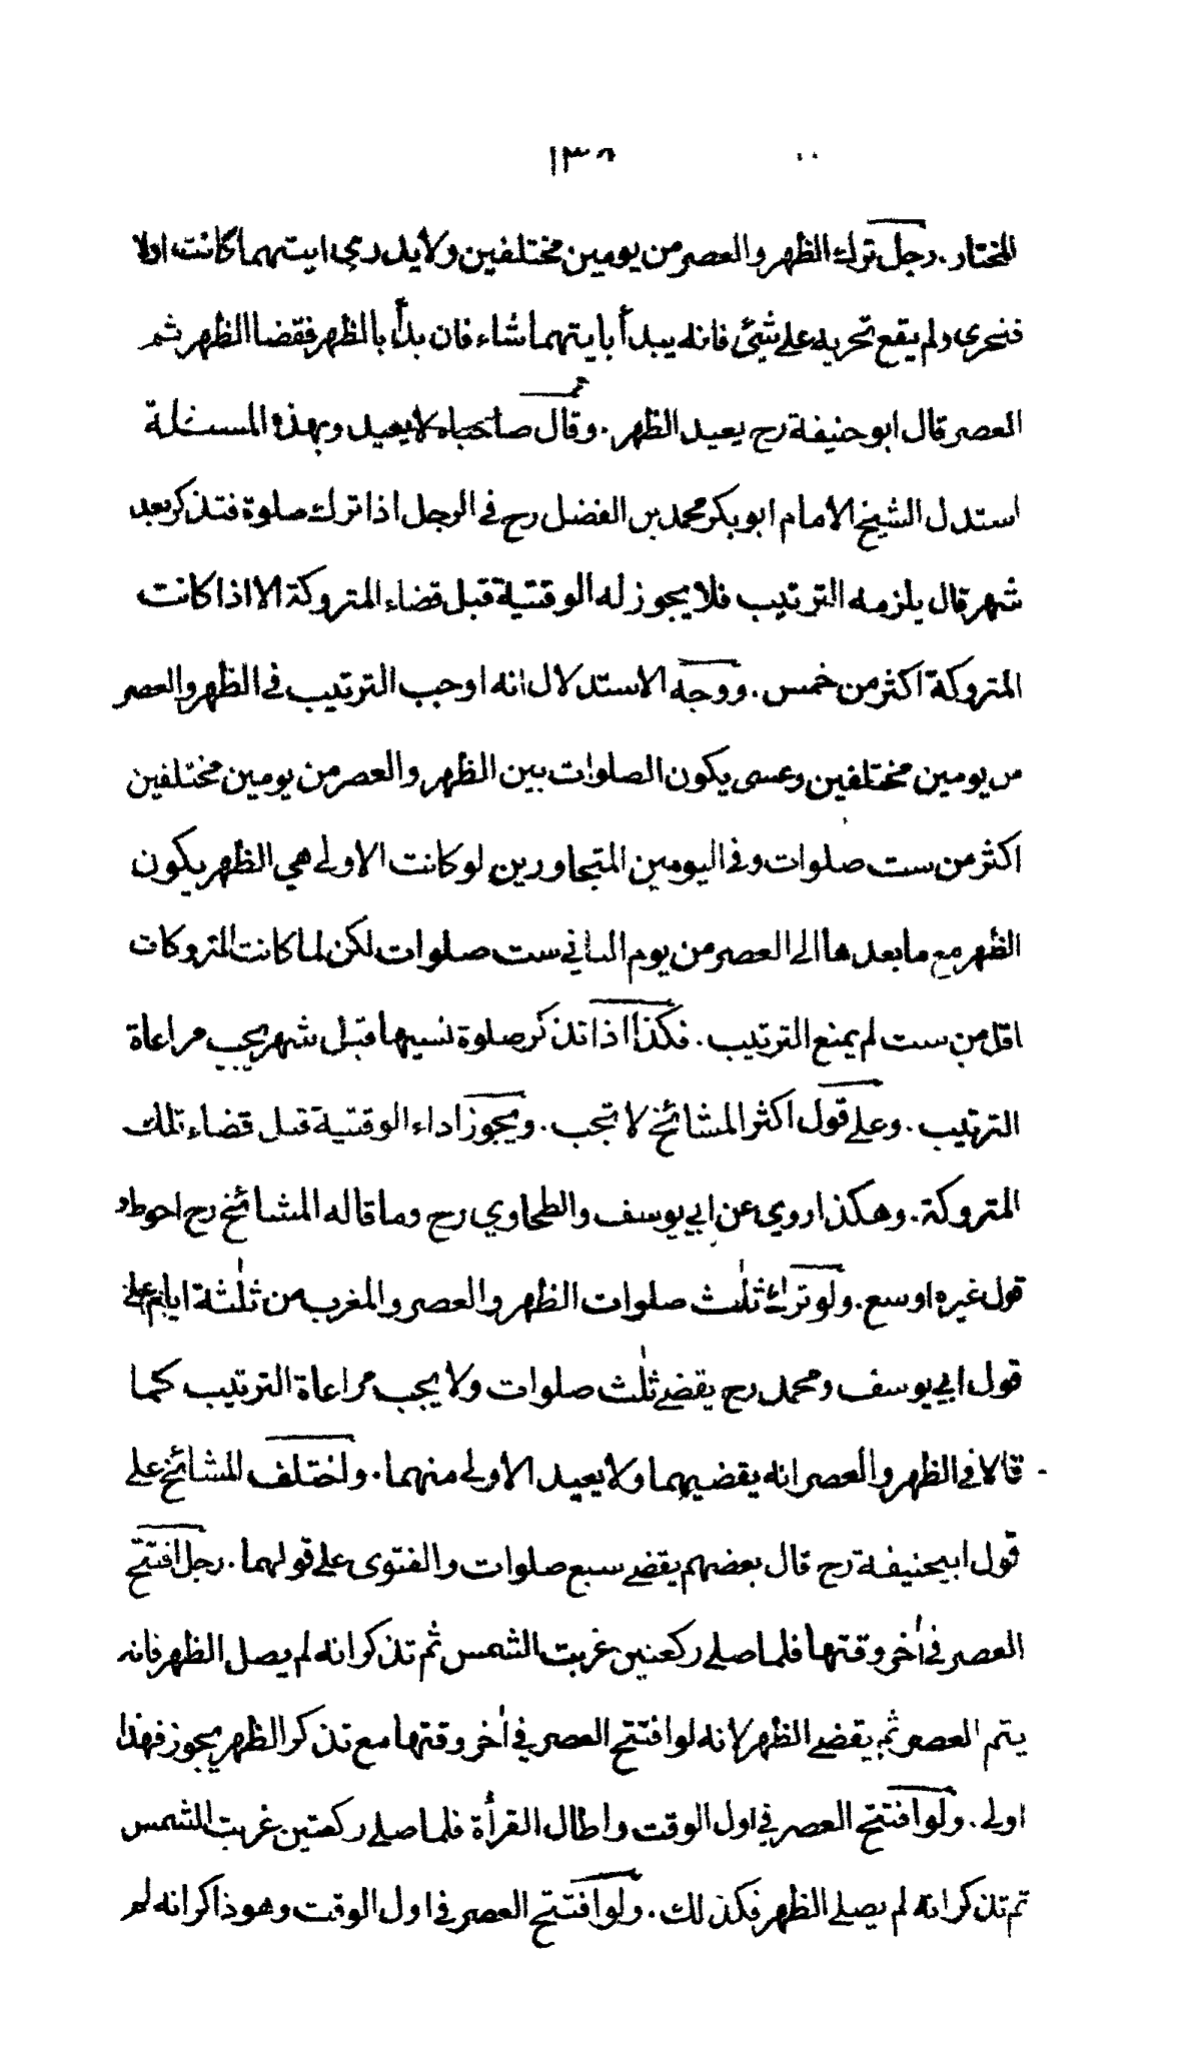 ١٣٨
المختار . رجل ترك الظهر والعصر من يومين مختلفين ولا يدري ايتهما كانت اولا
فتحرى ولم يقع تحريه على شيئ فانه يبدأ بايتهما شاء فان بدأ بالظهر فقضا الظهر ثم
العصر قال ابو حنيفة رح يعيد الظهر . وقال صاحباه لا يعيد وبهذه المسئلة
استدل الشيخ الامام ابو بكر محمد بن الفضل رح في الرجل اذا ترك صلوة فتذكر بعد
شهر قال يلزمه الترتيب فلا يجوز له الوقتية قبل قضاء المتروكة الا اذا كانت
المتروكة اكثر من خمس . ووجه الاستدلال انه اوجب الترتيب في الظهر والعصر
من يومين مختلفين وعسى يكون الصلوات بين الظهر والعصر من يومين مختلفين
اكثر من ست صلوات وفي اليومين المتجاورين لو كانت الاولى هي الظهر يكون
الظهر مع ما بعدها الى العصر من يوم الثاني ست صلوات لكن لما كانت المتروكات
اقل من ست لم يمنع الترتيب . فكذا اذا تذكر صلوة نسيها قبل شهر يجب مراعاة
الترتيب . وعلى قول اكثر المشائخ لا تجب . ويجوز اداء الوقتية قبل قضاء تلك
المتروكة . وهكذا روي عن ابي يوسف والطحاوي رح وما قاله المشائخ رح احوط و
قول غيره اوسع . ولو ترك ثلٰث صلوات الظهر والعصر والمغرب من ثلٰثة ايام على
قول ابي يوسف ومحمد رح يقضي ثلٰث صلوات ولا يجب مراعاة الترتيب كما
قالا في الظهر والعصر انه يقضيهما ولا يعيد الاولى منهما . واختلف المشائخ على
قول ابيحنيفة رح قال بعضهم يقضي سبع صلوات والفتوى على قولهما . رجل افتتح
العصر في اٰخر وقتها فلما صلى ركعتين غربت الشمس ثم تذكر انه لم يصل الظهر فانه
يتم العصر ثم يقضي الظهر لانه لو افتتح العصر في اٰخر وقتها مع تذكر الظهر يجوز فهذا
اولى . ولو افتتح العصر في اول الوقت واطال القرأة فلما صلى ركعتين غربت الشمس
ثم تذكر انه لم يصلي الظهر فكذلك . ولو افتتح العصر في اول الوقت وهو ذاكر انه لم